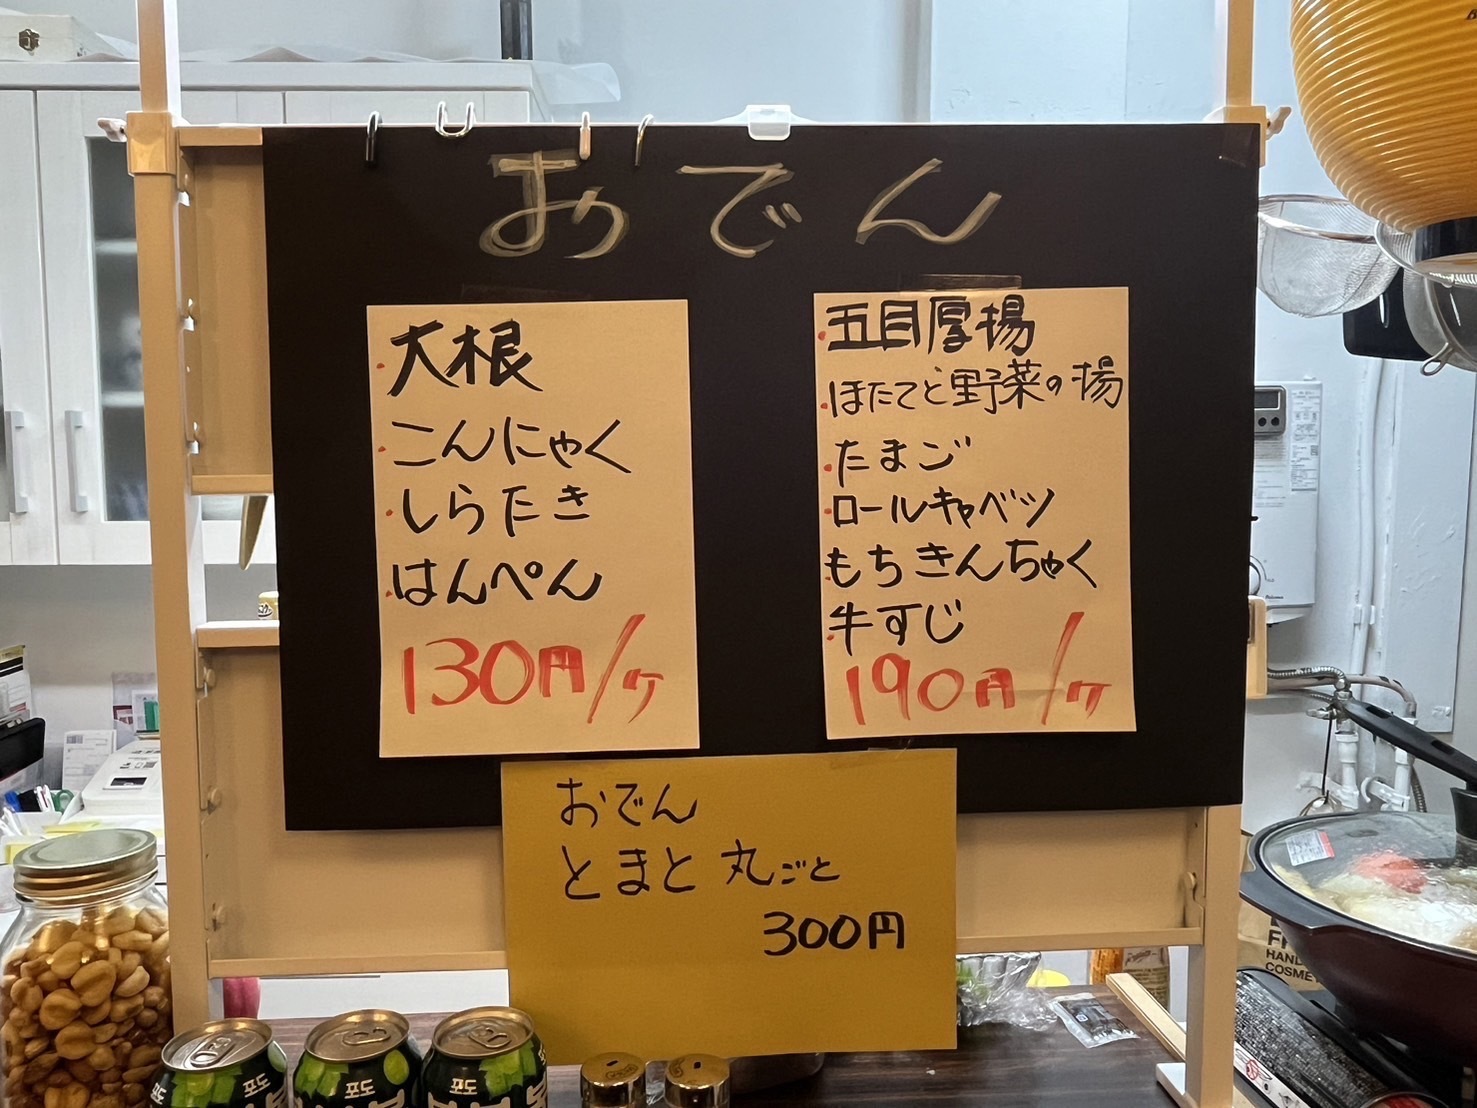 おでん
・大根
・こんにゃく
・しらたき
・はんぺん
130円/ヶ
・五目厚揚
・ほたてと野菜の揚
・たまご
・ロールキャベツ
・もちきんちゃく
・牛すじ
190円/ヶ
おでん
とまと丸ごと
300円
포도
포도
포도
HAND
COSME